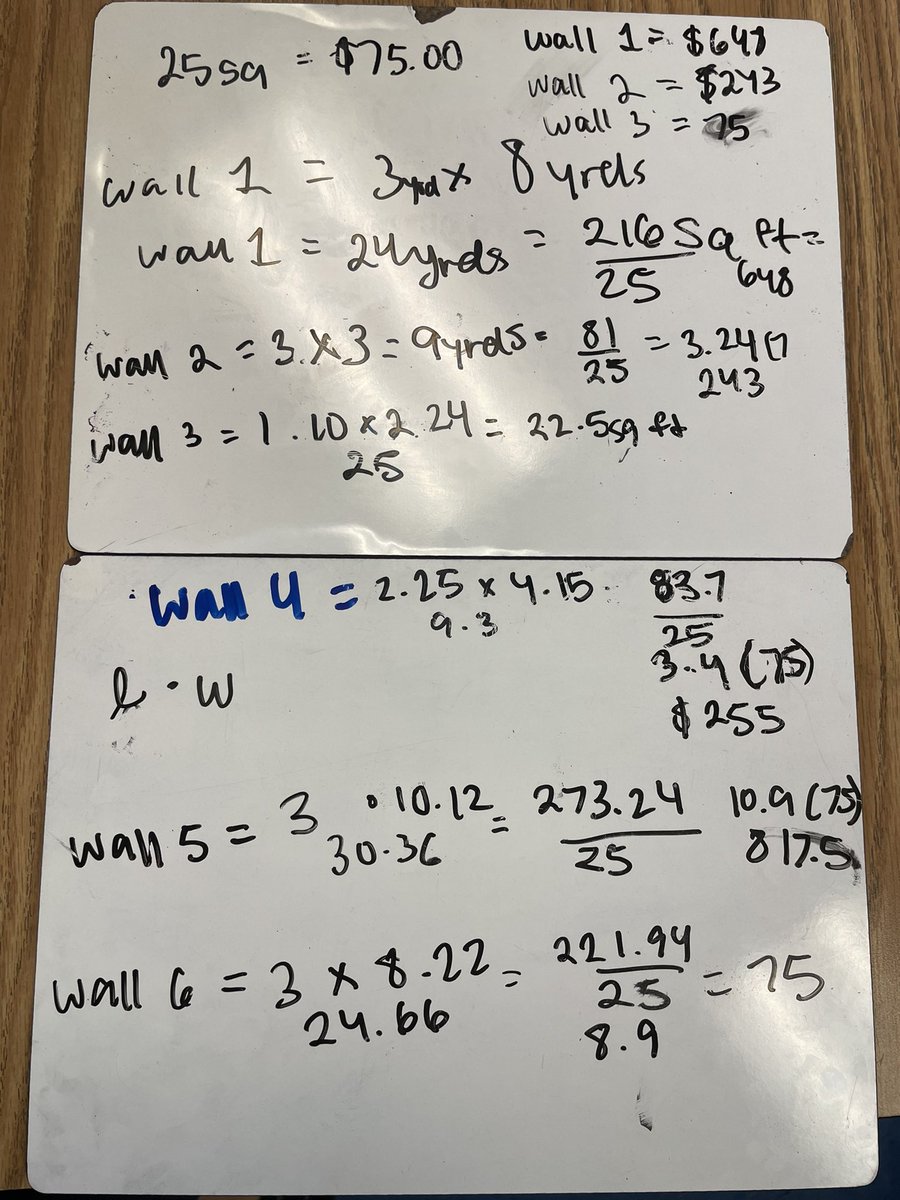 25sq = $75.00
wall 1 = $648
wall 2 = $243
wall 3 = 75
wall 1 = 3yrd x 8 yrds
wall 1 = 24yrds = 216 sq ft =
25
648
wall 2 = 3 x 3 = 9yrds = 81 = 3.24 (7
25
243
wall 3 = 1.10 x 2.24 = 22.5sq ft
25
wall 4 = 2.25 x 4.15 83.7
9.3
25
3.4 (75)
l · w
$255
wall 5 = 3 · 10.12 = 273.24 10.9 (75)
30.36
25
817.5
wall 6 = 3 x 8.22 = 221.94 = 75
24.66
25
8.9